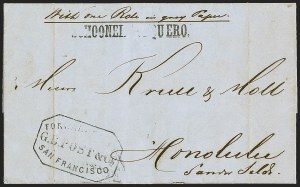 With one Role in gray Paper
SCHOONER VAQUERO.
Messrs Krull & Moll
FORW
G.B. POST & Co
SAN FRANCISCO
Honolulu
Sandw Islds.